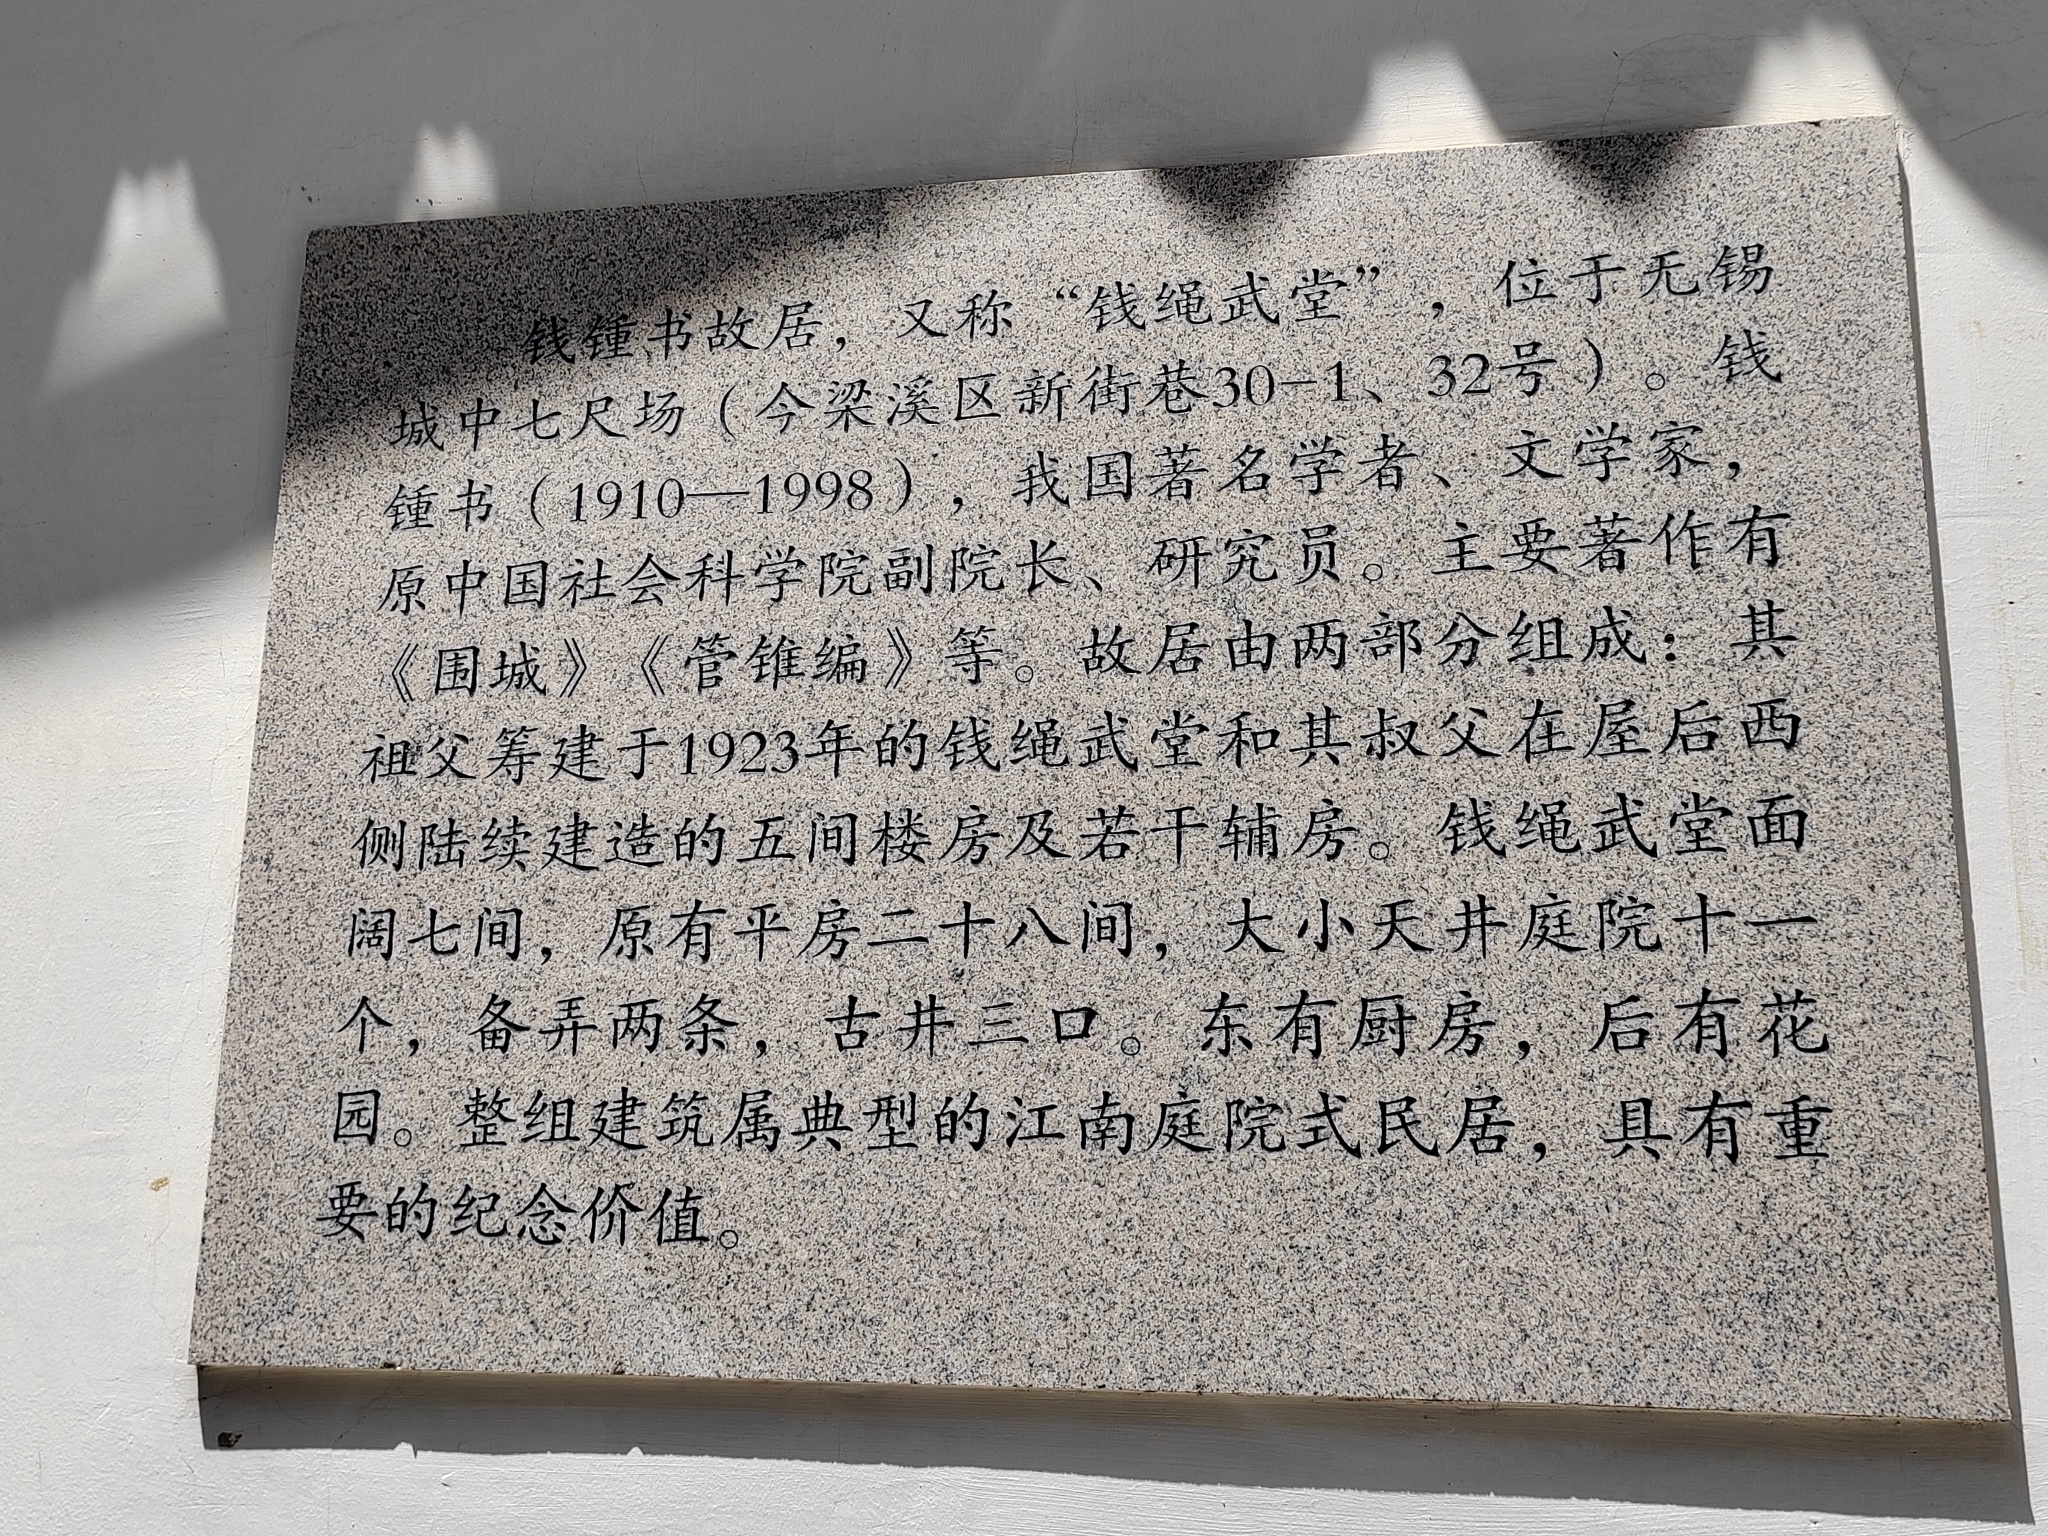 钱锺书故居，又称“钱绳武堂”，位于无锡
城中七尺场（今梁溪区新街巷30-1、32号）。钱
锺书（1910—1998），我国著名学者、文学家，
原中国社会科学院副院长、研究员。主要著作有
《围城》《管锥编》等。故居由两部分组成：其
祖父筹建于1923年的钱绳武堂和其叔父在屋后西
侧陆续建造的五间楼房及若干辅房。钱绳武堂面
阔七间，原有平房二十八间，大小天井庭院十一
个，备弄两条，古井三口。东有厨房，后有花
园。整组建筑属典型的江南庭院式民居，具有重
要的纪念价值。